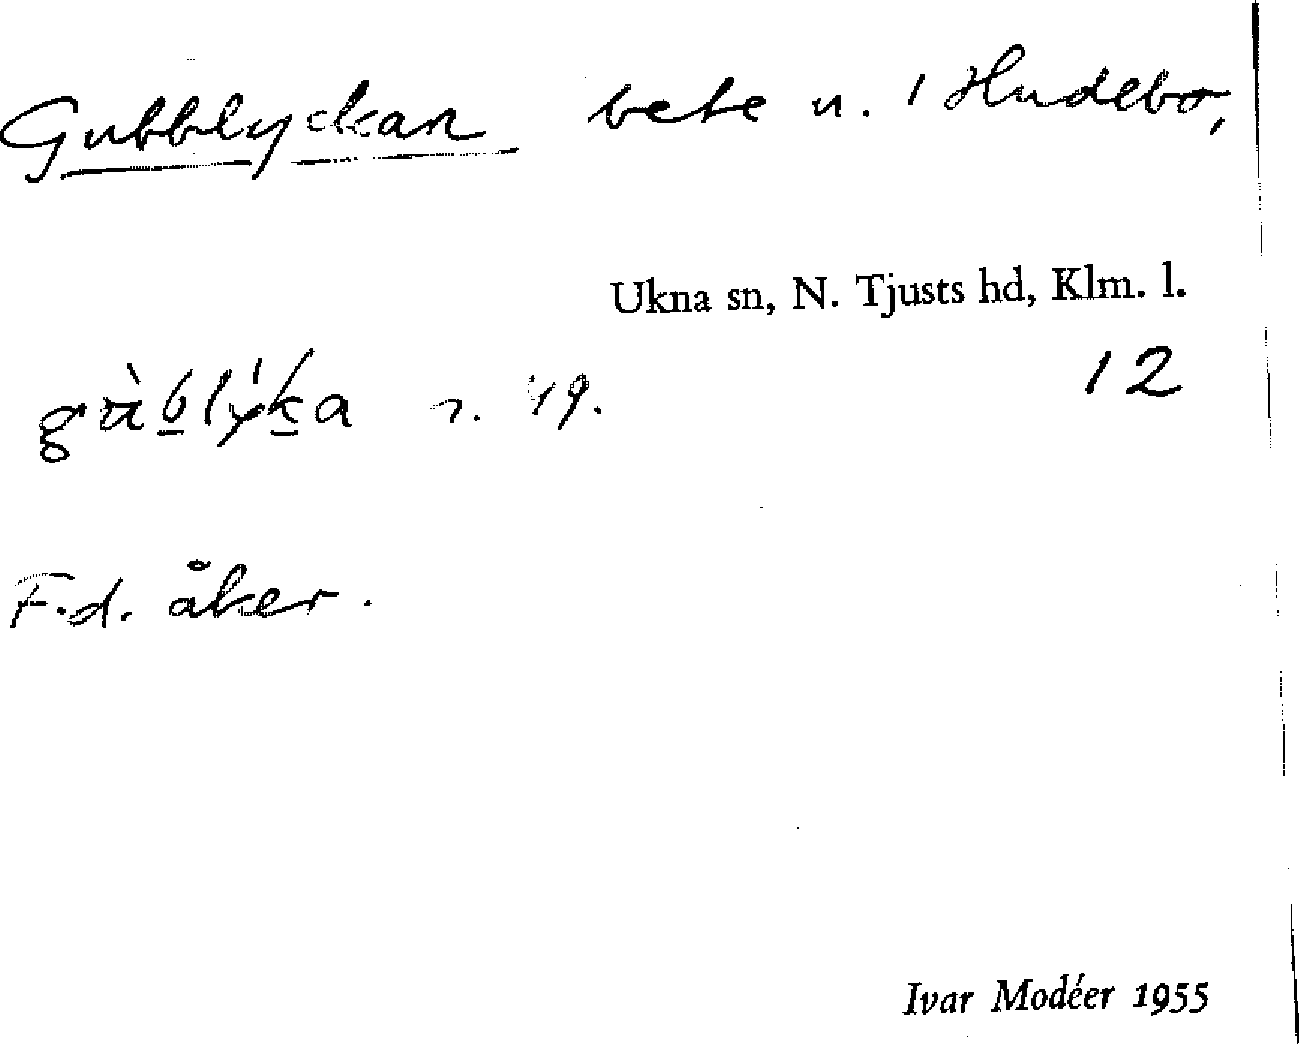 Gubblyckan bete u. i Hudebo,
Ukna sn, N. Tjusts hd, Klm. l.
12
49.
F.d. åker.
Ivar Modéer 1955